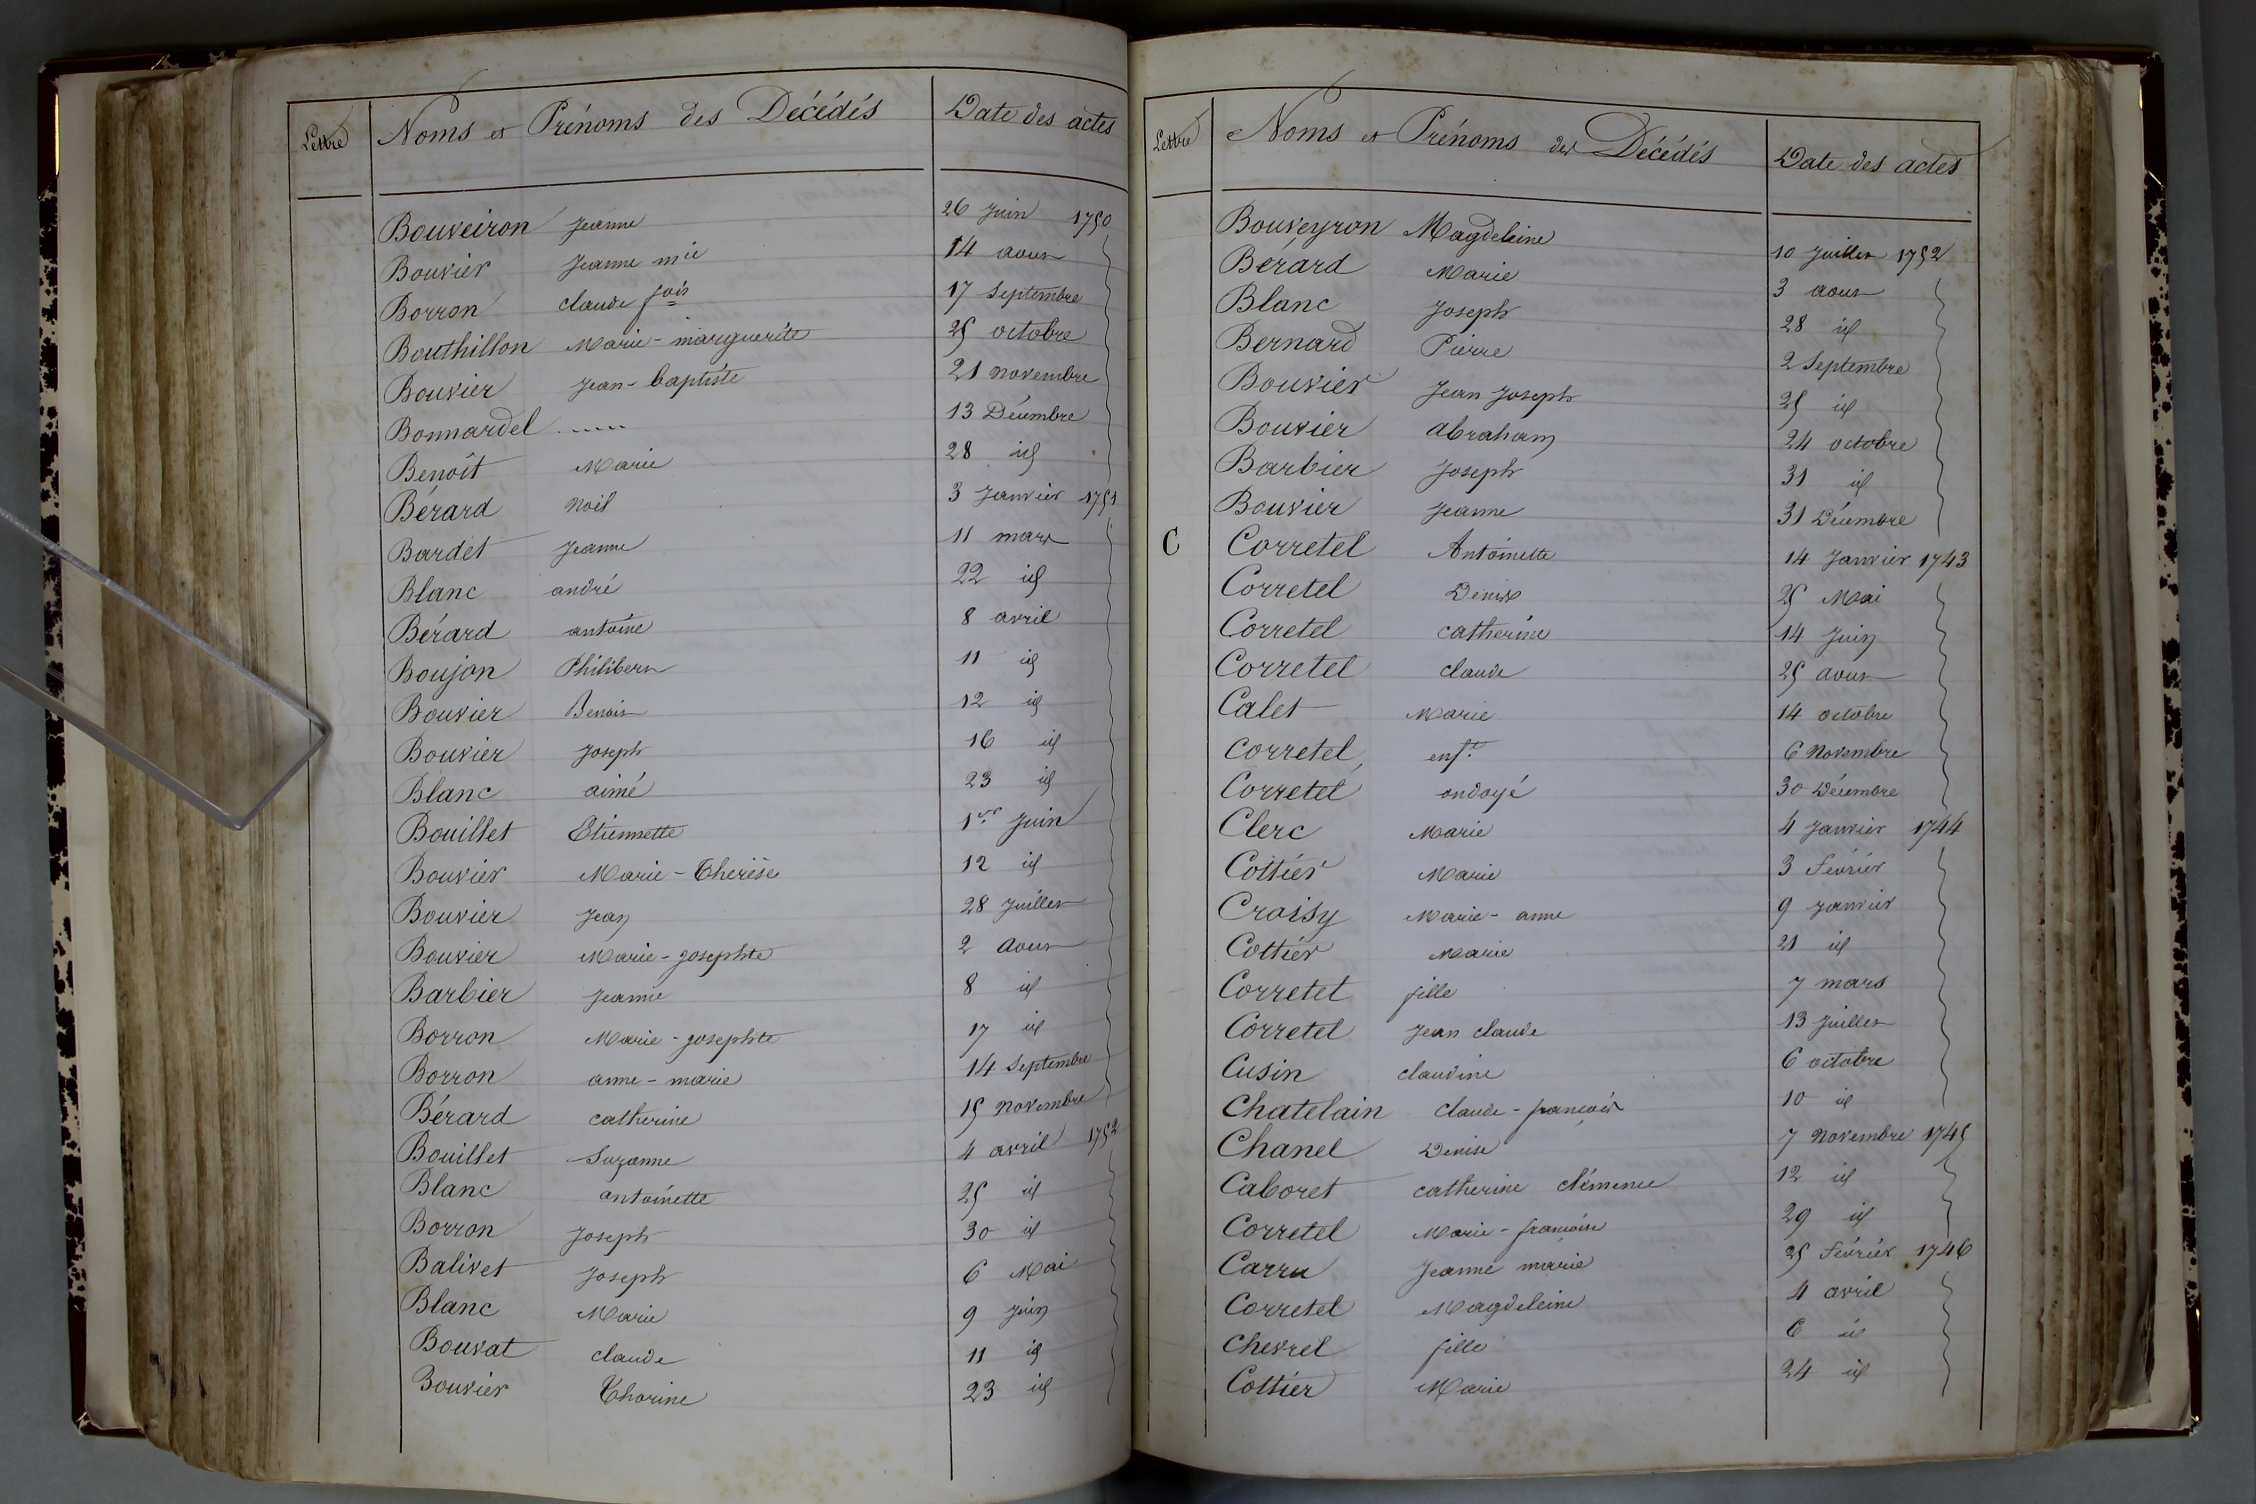 Lettre Noms et Prénoms des Décédés Date des actes
Bouveiron Jeanne 26 Juin 1750
Bouvier Jeanne mie 14 aout
Borron claude fois 17 Septembre
Bouthillon Marie-marguerite 25 octobre
Bouvier Jean-baptiste 21 novembre
Bonnardel ...... 13 Décembre
Benoît Marie 28 id
Bérard Noël 3 Janvier 1751
Bardet Jeanne 11 mars
Blanc andré 22 id
Bérard antoine 8 avril
Boujon Philibert 11 id
Bouvier Benoit 12 id
Bouvier Joseph 16 id
Blanc aimé 23 id
Bouillet Etiennette 1er Juin
Bouvier Marie-Therèse 12 id
Bouvier Jean 28 Juillet
Bouvier Marie-Josephte 2 Aout
Barbier Jeanne 8 id
Borron Marie-Josephte 17 id
Borron anne-marie 14 Septembre
Bérard catherine 15 Novembre
Bouillet Suzanne 4 avril 1752
Blanc antoinette 25 id
Borron Joseph 30 id
Balivet Joseph 6 Mai
Blanc Marie 9 Juin
Bouvat claude 11 id
Bouvier Thorine 23 id
Lettre Noms et Prénoms des Décédés Date des actes
Bouveyron Magdeleine 10 Juillet 1752
Bérard Marie 3 aout
Blanc Joseph 28 id
Bernard Pierre 2 Septembre
Bouvier Jean Joseph 25 id
Bouvier Abraham 24 octobre
Barbier Joseph 31 id
Bouvier Jeanne 31 Décembre
C Corretel Antoinette 14 Janvier 1743
Corretel Denise 25 Mai
Corretel catherine 14 Juin
Corretel claude 25 aout
Calet Marie 14 octobre
Corretel, enft 6 Novembre
Corretel ondoyé 30 Décembre
Clerc Marie 4 Janvier 1744
Cottier Marie 3 Février
Croisy Marie-anne 9 Janvier
Cottier Marie 21 id
Corretet fille 7 mars
Corretel Jean claude 13 Juillet
Cusin claudine 6 octobre
Chatelain Claude-françois 10 id
Chanel Denise 7 Novembre 1745
Caboret catherine clémence 12 id
Corretel Marie-françoise 29 id
Carru Jeanne marie 25 Février 1746
Corretel Magdeleine 4 avril
Chevrel fille 6 id
Cottier Marie 24 id